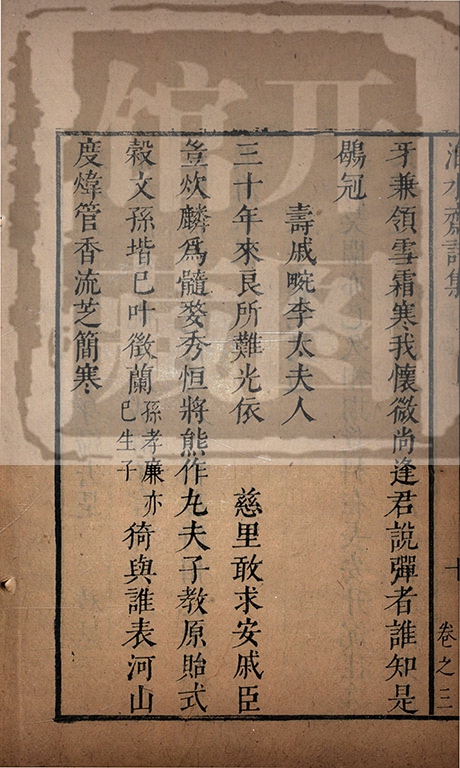 齋詩集
十
卷之三
牙兼領雪霜寒我懷微尚逢君說彈者誰知是
鶡冠
壽戚畹李太夫人
三十年來良所難光依 慈里敢求安戚臣
烹炊麟為髓婺秀恒將熊作丸夫子教原貽式
穀文孫堦已叶徵蘭孫孝廉亦已生子猗與誰表河山
度煒管香流芝簡寒